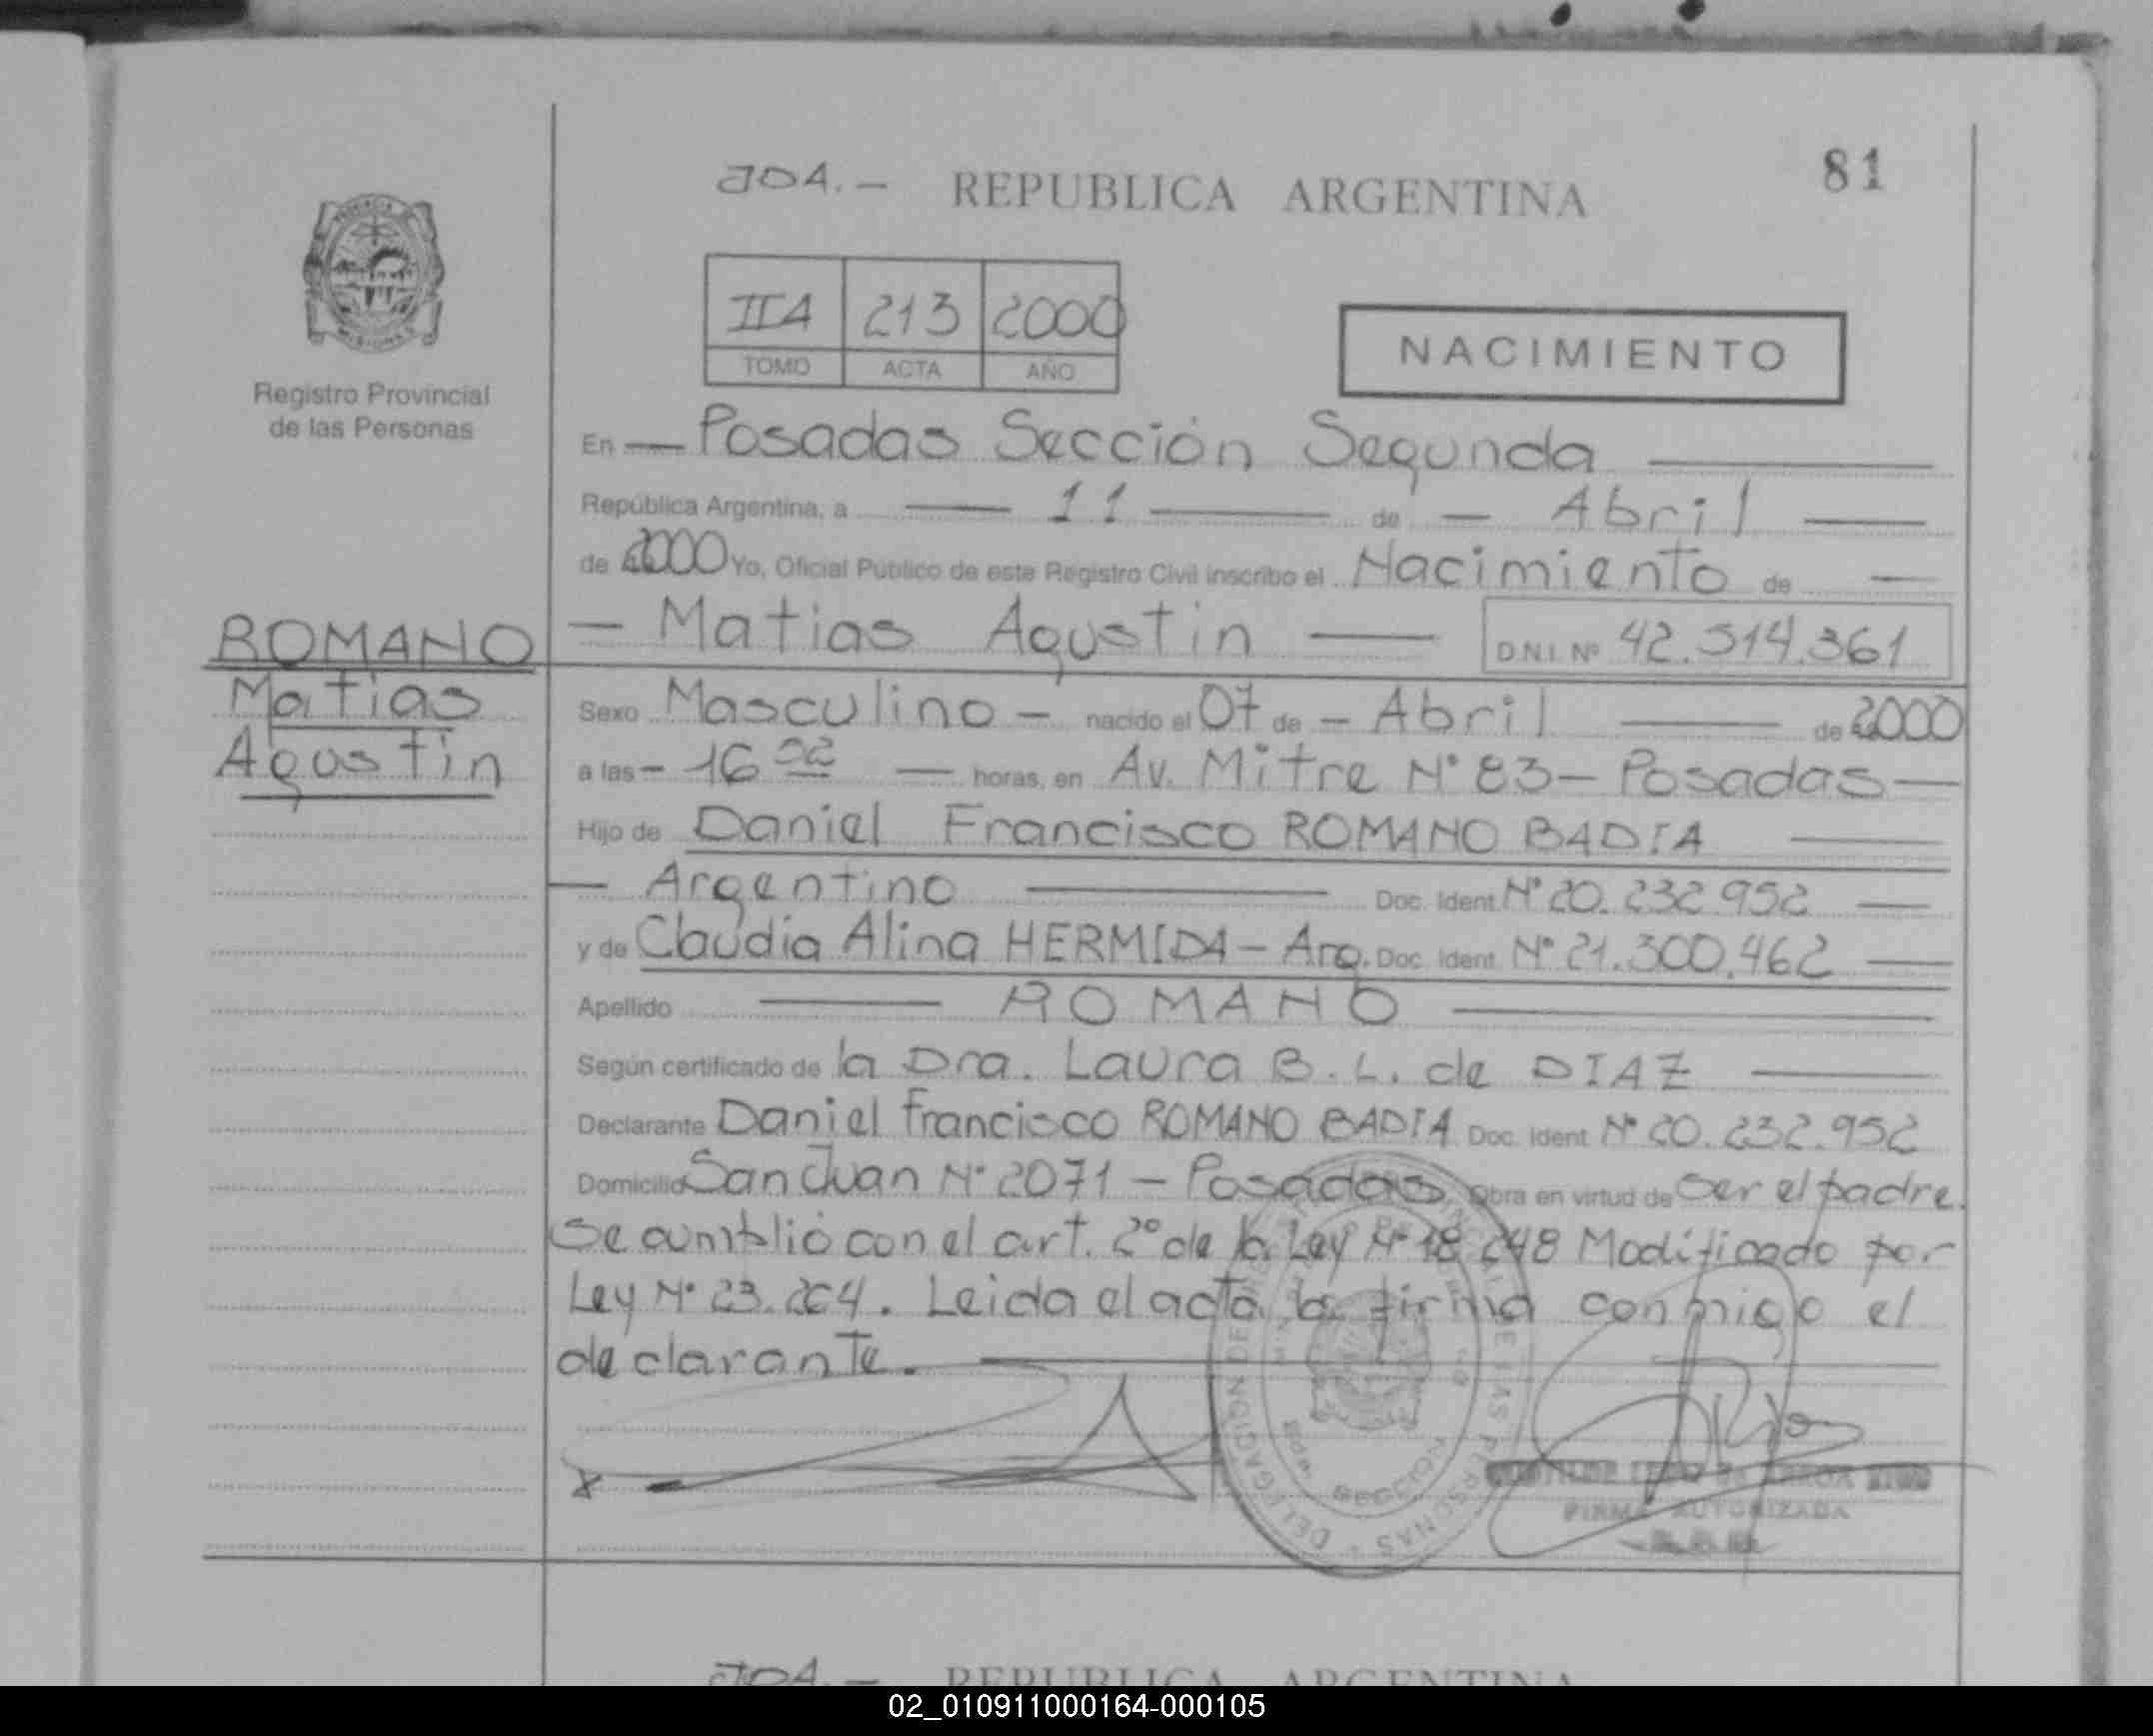 81
JOA.- REPUBLICA ARGENTINA
IIA 213 2000
TOMO ACTA AÑO
NACIMIENTO
Registro Provincial
de las Personas
En — Posadas Sección Segunda —
República Argentina, a — 11 — de — Abril —
de 2000 Yo, Oficial Público de este Registro Civil inscribo el Nacimiento de —
— Matias Agustin — D.N.I. Nº 42.514.361
ROMANO
Matias
Agustin
Sexo Masculino — nacido el 07 de — Abril — de 2000
a las — 16 — horas, en Av. Mitre Nº 83 — Posadas —
Hijo de Daniel Francisco ROMANO BADIA —
— Argentino — Doc. Ident. Nº 20.232.952 —
y de Claudia Alina HERMIDA — Arg. Doc. Ident. Nº 21.300.462 —
Apellido — ROMANO —
Según certificado de la Dra. Laura B. L. de DIAZ —
Declarante Daniel Francisco ROMANO BADIA Doc. Ident. Nº 20.232.952
Domicilio San Juan Nº 2071 — Posadas Obra en virtud de ser el padre.
Se cumplió con el art. 2º de la Ley Nº 18.248 Modificado por
Ley Nº 23.264. Leida el acta la firma conmigo el
declarante. —
x
FIRMA AUTORIZADA
JOA.— REPUBLICA ARGENTINA
02_010911000164-000105